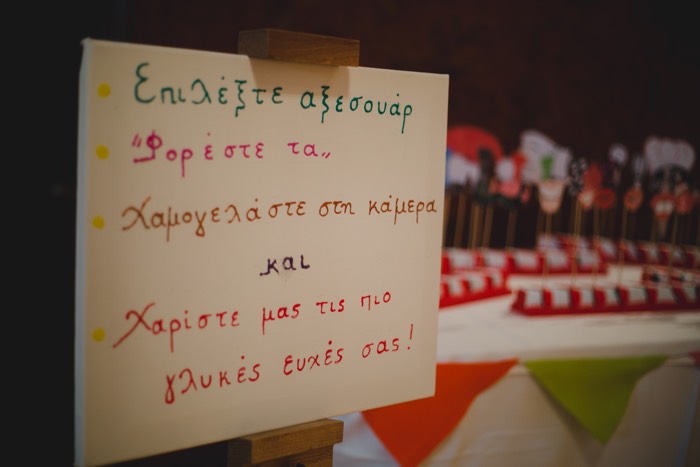 Επιλέξτε αξεσουάρ
"Φορέστε τα„
Χαμογελάστε στη κάμερα
και
Χαρίστε μας τις πιο
γλυκές ευχές σας!